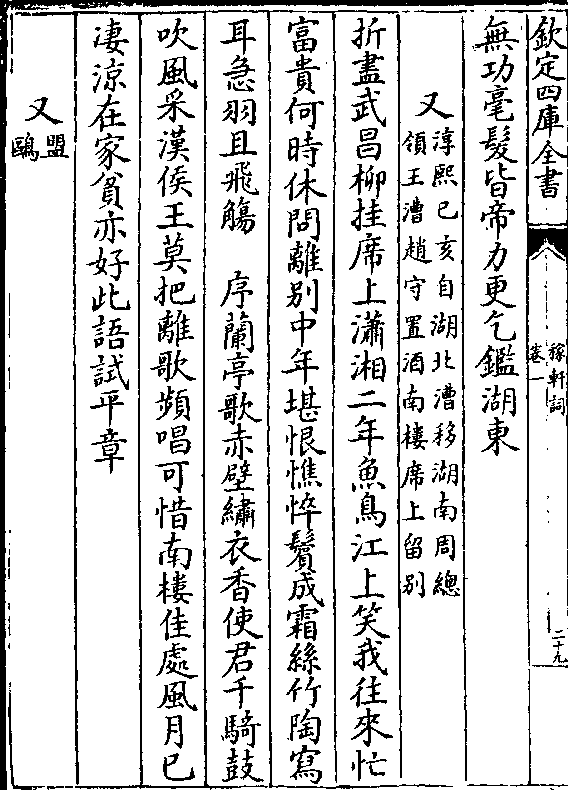 欽定四庫全書
稼軒詞
卷一
二十九
無功毫髮皆帝力更乞鑑湖東
又淳熙己亥自湖北漕移湖南周總
領王漕趙守置酒南樓席上留别
折盡武昌柳挂席上瀟湘二年魚鳥江上笑我往來忙
富貴何時休問離别中年堪恨憔悴鬢成霜絲竹陶寫
耳急羽且飛觴　序蘭亭歌赤壁繡衣香使君千騎鼓
吹風采漢侯王莫把離歌頻唱可惜南樓佳處風月已
凄涼在家貧亦好此語試平章
又盟
鷗